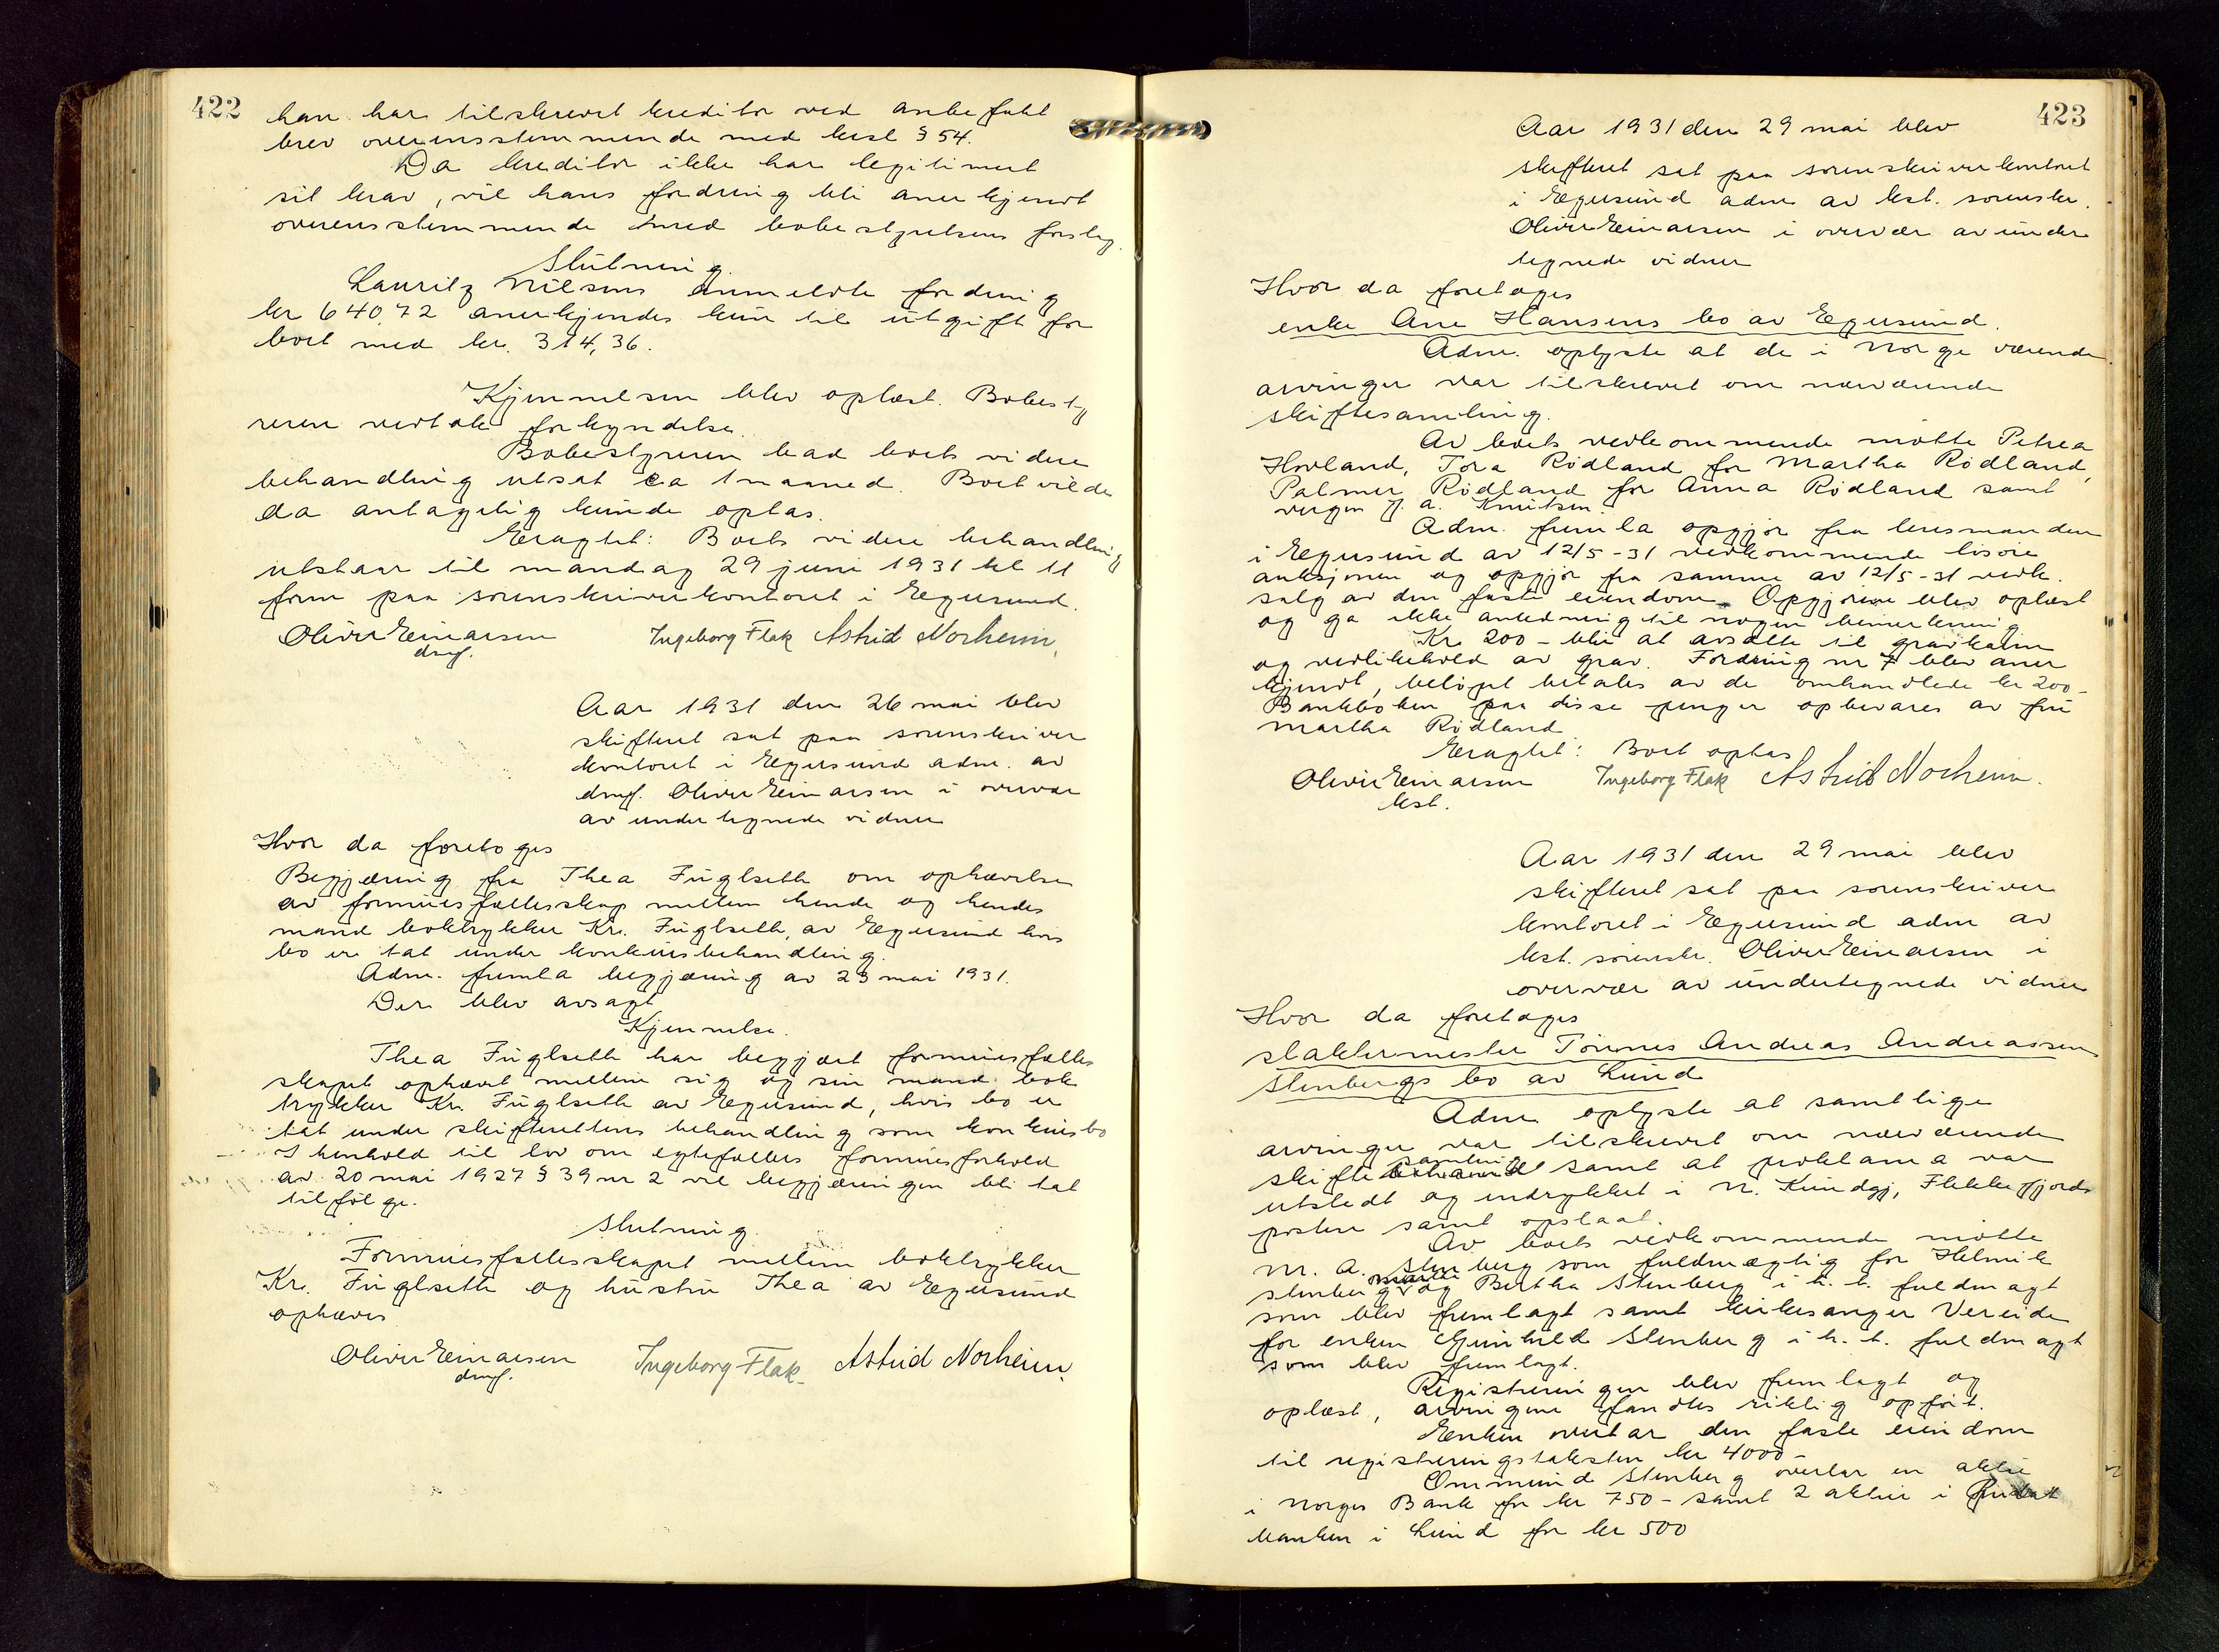 422
han har tilskrevet kreditor ved anbefalt
brev overensstemmende med kksl § 54.
Da kreditor ikke har legitimert
sit krav, vil hans fordring bli anerkjendt
overensstemmende med bobestyrelsens forslag.
Slutning.
Lauritz Nilsens anmeldte fordring
kr 640,72 anerkjendes kun til utgift for
boet med kr. 314,36.
Kjennelsen blev oplæst. Bobesty
reren vedtok forkyndelse.
Bobestyreren bad boets videre
behandling utsat ca 1 maaned. Boet vilde
da antagelig kunde optas.
Eragtet: Boets videre behandling
utstaar til mandag 29 juni 1931 kl 11
form paa sorenskriverkontoret i Egersund.
Oliver Einarsen Ingeborg Flak Astrid Norheim.
dmf.
Aar 1931 den 26 mai blev
skifteret sat paa sorenskriver
kontoret i Egersund adm. av
dmf. Oliver Einarsen i overvær
av undertegnede vidner
Hvor da foretoges
Begjæring fra Thea Fuglseth om ophævelse
av formuesfællesskap mellem hende og hendes
mand boktrykker Kr. Fuglseth, av Egersund hvis
bo er tat under konkursbehandling.
Adm. fremla begjæring av 23 mai 1931.
Der blev avsagt
Kjennelse.
Thea Fuglseth har begjært formuesfælles
skapet ophævet mellem sig og sin mand bok
trykker Kr. Fuglseth av Egersund, hvis bo er
tat under skifterettens behandling som konkursbo
I henhold til lov om egtefællers formuesforhold
av 20 mai 1927 § 39 nr 2 vil begjæringen bli tat
tilfølge.
Slutning
Formuesfællesskapet mellem boktrykker
Kr. Fuglseth og hustru Thea av Egersund
ophæves
Oliver Einarsen Ingeborg Flak Astrid Norheim.
dmf.
423
Aar 1931 den 29 mai blev
skifteret sat paa sorenskriverkontoret
i Egersund adm av kst. sorenskr.
Oliver Einarsen i overvær av under
tegnede vidner
Hvor da foretoges
enke Ane Hansens bo av Egersund.
Adm. oplyste at de i Norge værende
arvinger var tilskrevet om nærværende
skiftesamling.
Av boets vedkommende møtte Petrea
Hovland, Tora Rødland for Martha Rødland,
Palmer Rødland for Anna Rødland samt
vergen J. A. Knutsen.
Adm. fremla opgjør fra lensmanden
i Egersund av 12/5-31 vedkommende løsøre
auksjonen og opgjør fra samme av 12/5-31 vedk.
salg av den faste eiendom. Opgjørene blev oplæst
og ga ikke anledning til nogen bemerkning
Kr 200- blir at avsætte til gravkalm
og vedlikehold av grav. Fordring nr 7 blev aner
kjendt, beløpet betales av de omhandlede kr 200-
Bankboken paa disse penger opbevares av fru
Martha Rødland
Eragtet: Boet optas
Oliver Einarsen Ingeborg Flak Astrid Norheim.
kst.
Aar 1931 den 29 mai blev
skifteret sat paa sorenskriver
kontoret i Egersund adm av
kst. sorenskr. Oliver Einarsen i
overvær av undertegnede vidner
Hvor da foretoges
slaktermester Tønnes Andreas Andreassen
Stenbergs bo av Lund
Adm oplyste at samtlige
arvinger var tilskrevet om nærværende
skiftesamling samt at proklama var
utstedt og indrykket i N. Kundgj, Flekkefjords
posten samt opslaat.
Av boets vedkommende møtte
M. A. Stenberg som fuldmægtig for Helmik
Stenberg og Bertha Stenberg i h. t. fuldmagt
som blev fremlagt samt kirkesanger Vereide
for enken Gunhild Stenberg i h. t. fuldmagt
som blev fremlagt.
Registreringen blev fremlagt og
oplæst, arvingene fandtes riktig opført.
Enken overtar den faste eiendom
til registreringstaksten kr 4000-
Ommund Stenberg overtar en aktie
i Norges Bank for kr 750- samt 2 aktier i Privat
banken i Lund for kr 500